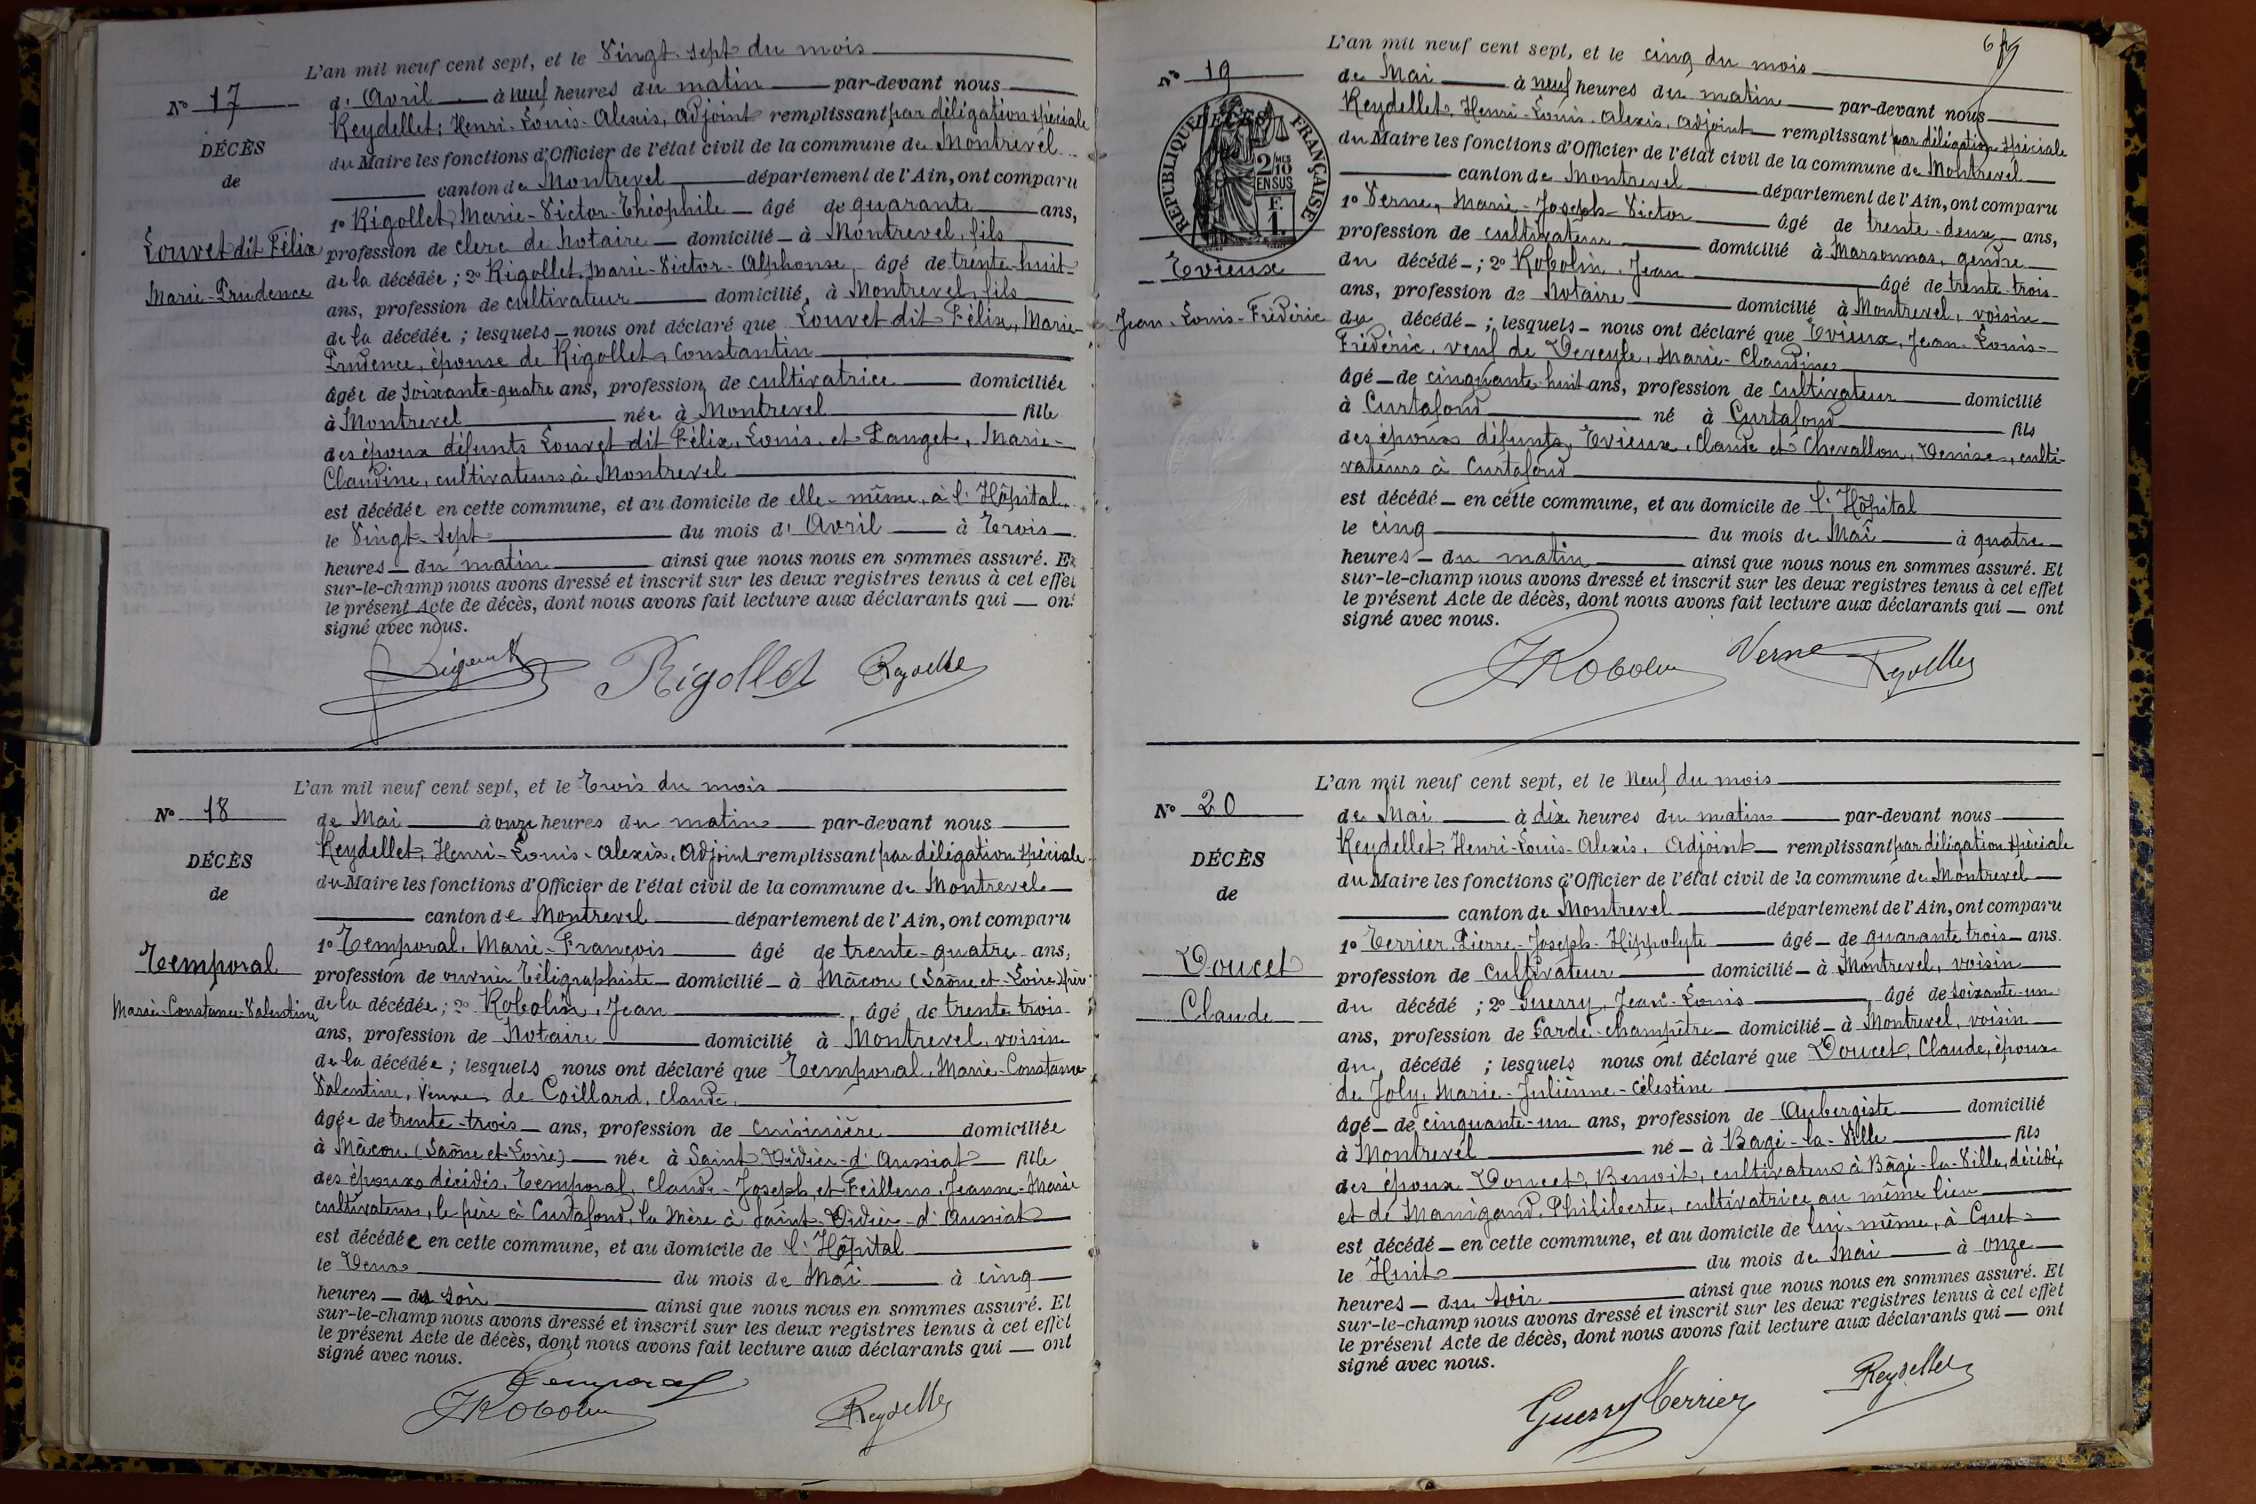 L'an mil neuf cent sept, et le Vingt-sept du mois
N° 17
d'Avril à neuf heures du matin par-devant nous
Reydellet, Henri-Louis-Alexis, Adjoint remplissant par délégation spéciale
DÉCÈS
du Maire les fonctions d'Officier de l'état civil de la commune de Montrevel
de
canton de Montrevel département de l'Ain, ont comparu
1° Rigollet, Marie-Victor-Théophile âgé de quarante ans,
Louvet dit Félix
profession de clerc de notaire domicilié à Montrevel, fils
de la décédée; 2° Rigollet, Marie-Victor-Alphonse, âgé de trente-huit
Marie-Prudence
ans, profession de cultivateur domicilié à Montrevel, fils
de la décédée; lesquels nous ont déclaré que Louvet dit Félix, Marie-
Prudence, épouse de Rigollet, Constantin
âgée de soixante-quatre ans, profession de cultivatrice domiciliée
à Montrevel née à Montrevel fille
des époux défunts Louvet dit Félix, Louis et Panget, Marie-
Claudine, cultivateurs à Montrevel
est décédée en cette commune, et au domicile de elle-même, à l'Hôpital
le Vingt-sept du mois d'Avril à Trois
heures du matin ainsi que nous nous en sommes assuré. Et
sur-le-champ nous avons dressé et inscrit sur les deux registres tenus à cet effet
le présent Acte de décès, dont nous avons fait lecture aux déclarants qui ont
signé avec nous.
Rigollet Reydellet
L'an mil neuf cent sept, et le Trois du mois
N° 18
de Mai à onze heures du matin par-devant nous
Reydellet, Henri-Louis-Alexis, Adjoint remplissant par délégation spéciale
DÉCÈS
du Maire les fonctions d'Officier de l'état civil de la commune de Montrevel
de
canton de Montrevel département de l'Ain, ont comparu
1° Temporal, Marie-François âgé de trente-quatre ans,
Temporal
profession de ouvrier Télégraphiste domicilié à Mâcon (Saône et-Loire) frère
Marie-Constance-Valentine
de la décédée; 2° Robolin, Jean âgé de trente trois
ans, profession de Notaire domicilié à Montrevel, voisin
de la décédée; lesquels nous ont déclaré que Temporal, Marie-Constance
Valentine, Veuve de Coillard, Claude,
âgée de trente-trois ans, profession de cuisinière domiciliée
à Mâcon (Saône et Loire) née à Saint Didier-d'Aussiat fille
des époux décédés, Temporal, Claude-Joseph, et Feillens, Jeanne-Marie
cultivateurs, le père à Curtafond, la mère à Saint-Didier-d'Aussiat
est décédée en cette commune, et au domicile de l'Hôpital
le Deux du mois de Mai à cinq
heures du soir ainsi que nous nous en sommes assuré. Et
sur-le-champ nous avons dressé et inscrit sur les deux registres tenus à cet effet
le présent Acte de décès, dont nous avons fait lecture aux déclarants qui ont
signé avec nous.
Temporal
JRobolin Reydellet
L'an mil neuf cent sept, et le cinq du mois
N° 19
de Mai à neuf heures du matin par-devant nous
Reydellet, Henri-Louis-Alexis, Adjoint remplissant par délégation spéciale
RÉPUBLIQUE FRANÇAISE
DÉCÈS
2/10 MES
EN SUS
F.
1.
du Maire les fonctions d'Officier de l'état civil de la commune de Montrevel
canton de Montrevel département de l'Ain, ont comparu
1° Verne, Marie-Joseph-Victor âgé de trente-deux ans,
profession de cultivateur domicilié à Marsonnas, gendre
Evieux
du décédé; 2° Robolin, Jean âgé de trente-trois
ans, profession de Notaire domicilié à Montrevel, voisin
Jean-Louis-Frédéric
du décédé; lesquels nous ont déclaré que Evieux, Jean-Louis-
Frédéric, veuf de Deveyle, Marie-Claudine
âgé de cinquante-huit ans, profession de cultivateur domicilié
à Curtafond né à Curtafond fils
des époux défunts, Evieux, Claude et Chevallon, Denise, culti-
vateurs à Curtafond
est décédé en cette commune, et au domicile de l'Hôpital
le cinq du mois de Mai à quatre
heures du matin ainsi que nous nous en sommes assuré. Et
sur-le-champ nous avons dressé et inscrit sur les deux registres tenus à cet effet
le présent Acte de décès, dont nous avons fait lecture aux déclarants qui ont
signé avec nous.
JRobolin Verne Reydellet
L'an mil neuf cent sept, et le Neuf du mois
N° 20
de Mai à dix heures du matin par-devant nous
Reydellet, Henri-Louis-Alexis, Adjoint remplissant par délégation spéciale
DÉCÈS
du Maire les fonctions d'Officier de l'état civil de la commune de Montrevel
de
canton de Montrevel département de l'Ain, ont comparu
1° Terrier, Pierre-Joseph-Hippolyte âgé de quarante trois ans.
Doucet
profession de cultivateur domicilié à Montrevel, voisin
du décédé; 2° Guerry, Jean-Louis, âgé de soixante-un
Claude
ans, profession de Garde-champêtre domicilié à Montrevel, voisin
du décédé; lesquels nous ont déclaré que Doucet, Claude, époux
de Joly, Marie-Julienne-Célestine
âgé de cinquante-un ans, profession de Aubergiste domicilié
à Montrevel né à Bagé-la-Ville fils
des époux Doucet, Benoit, cultivateur à Bâgé-la-Ville, décédé,
et de Manigand, Philiberte, cultivatrice au même lieu
est décédé en cette commune, et au domicile de lui-même, à Cuet
le Huit du mois de Mai à onze
heures du soir ainsi que nous nous en sommes assuré. Et
sur-le-champ nous avons dressé et inscrit sur les deux registres tenus à cet effet
le présent Acte de décès, dont nous avons fait lecture aux déclarants qui ont
signé avec nous.
Guerry Terrier Reydellet